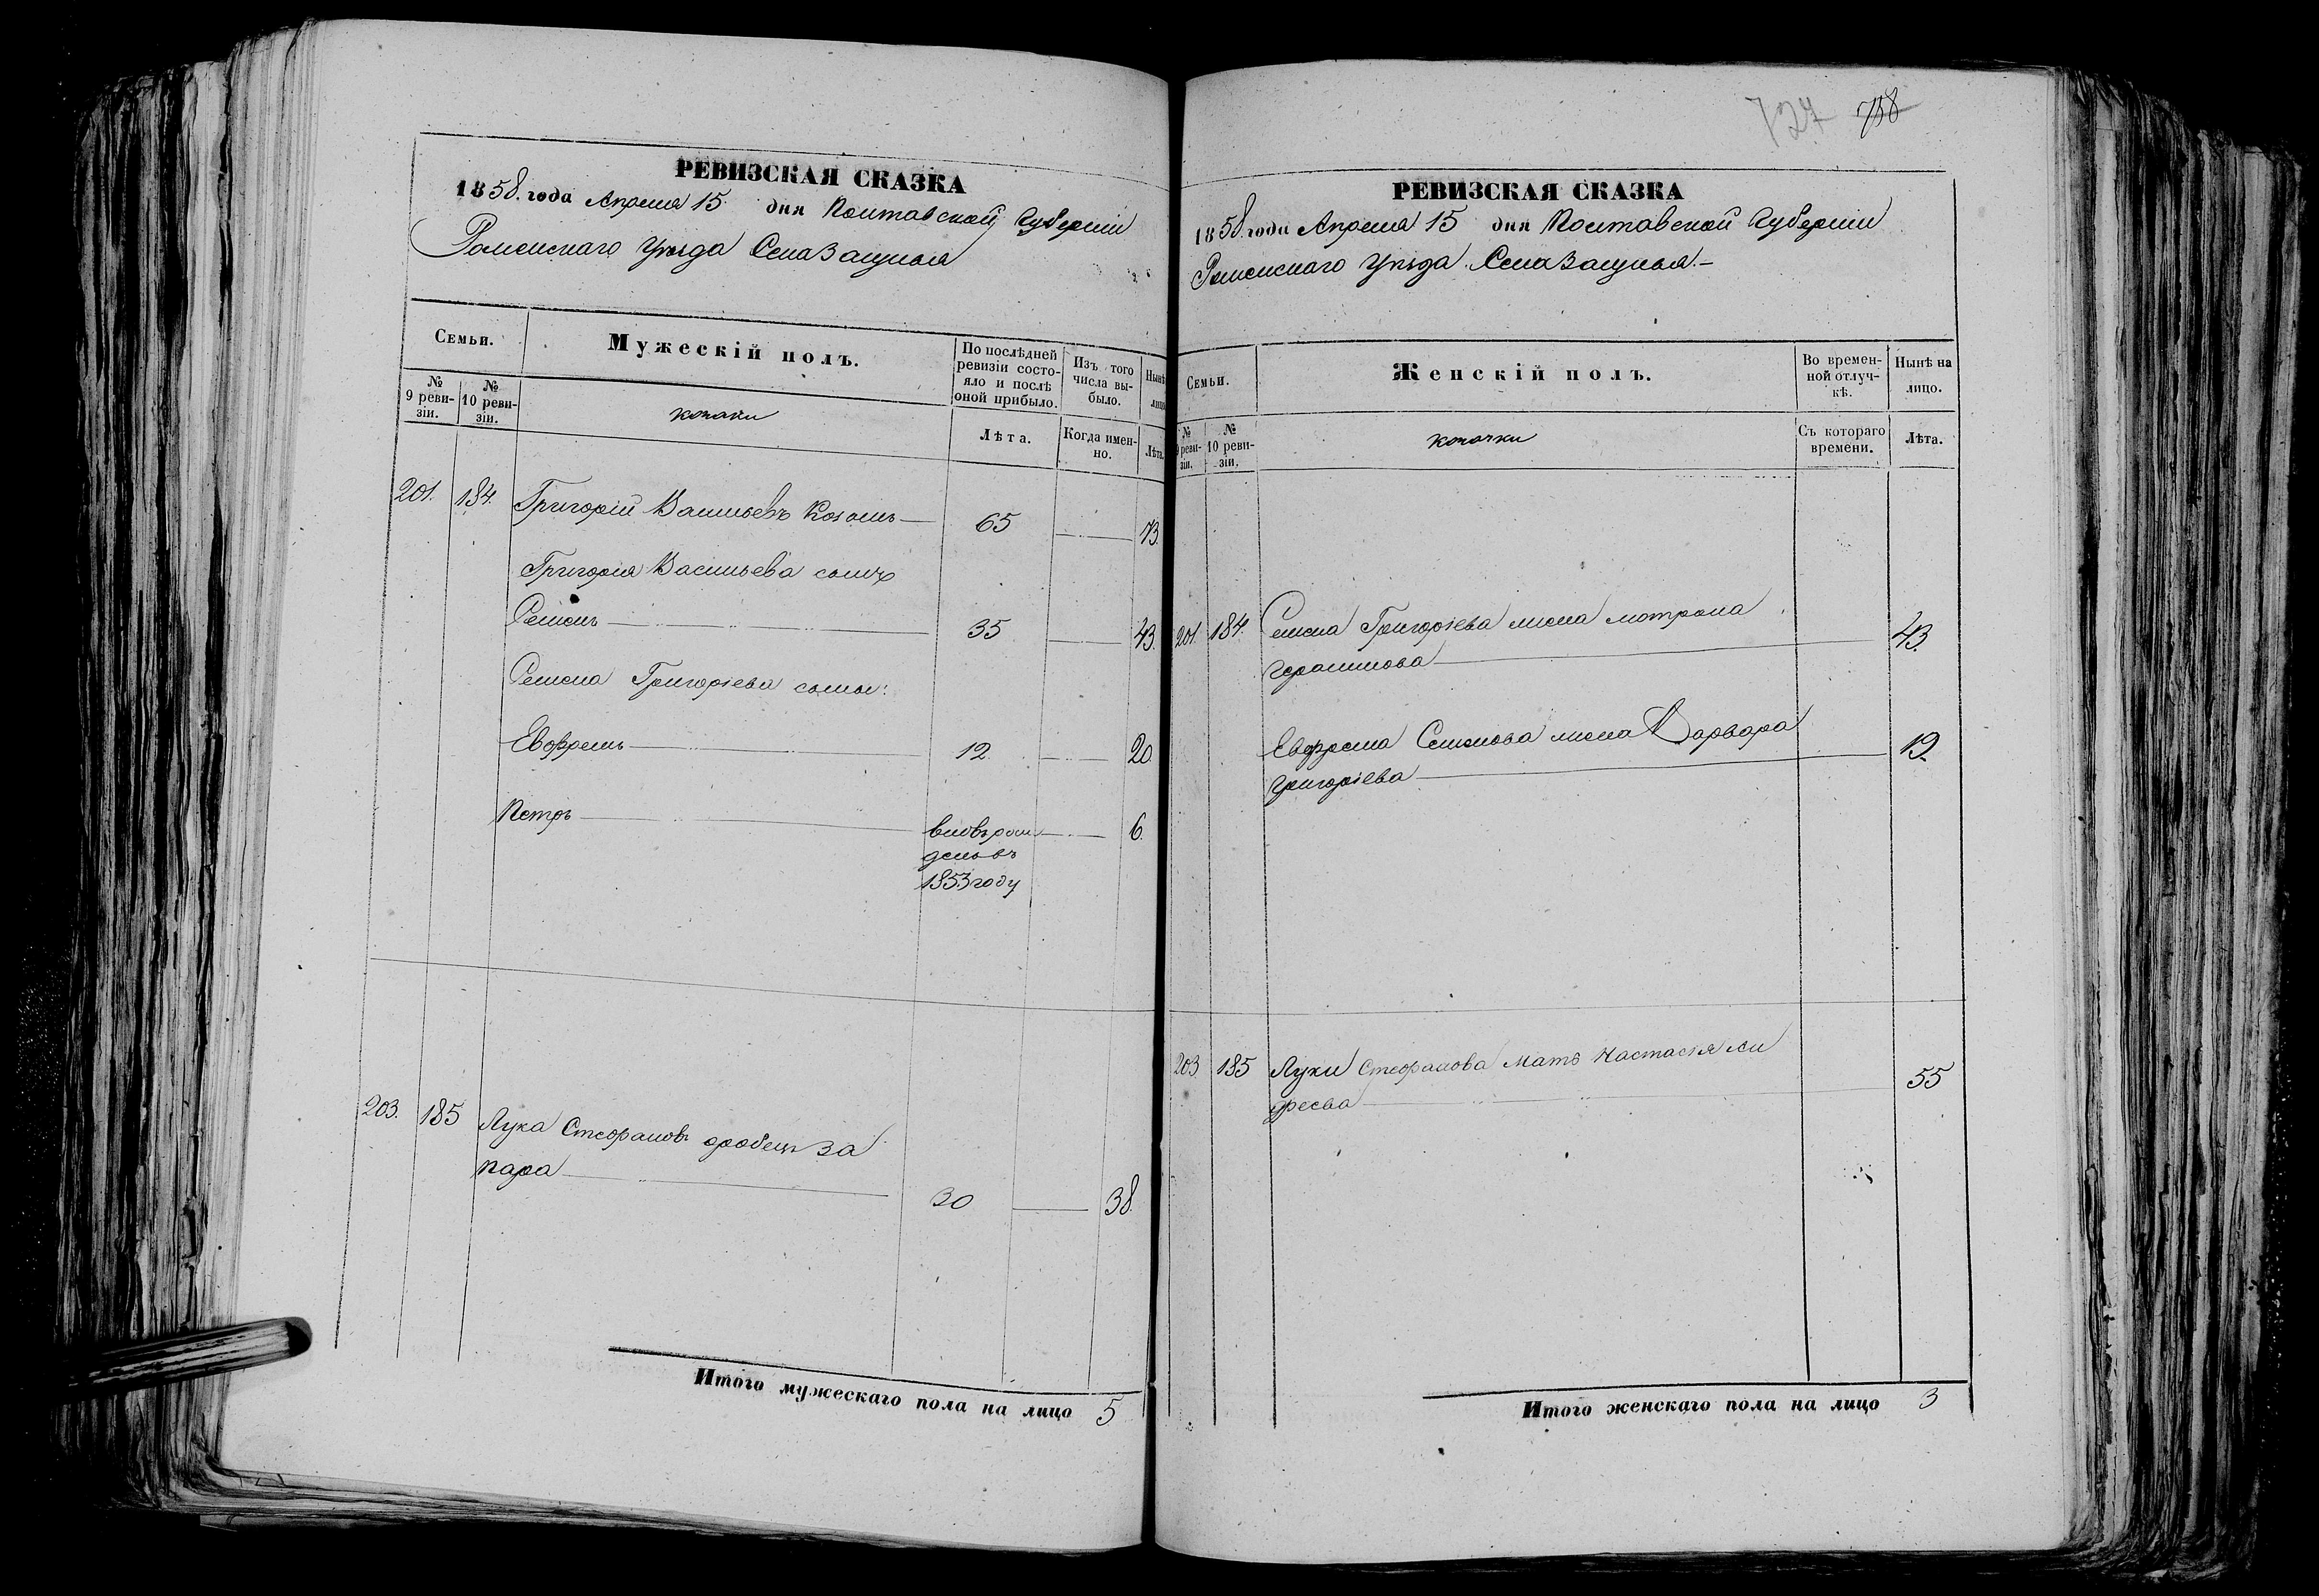 РЕВИЗСКАЯ СКАЗКА
1858 года Апреля 15 дня Полтавской Губернiи
Роменскаго Уѣзда Села Засулья
Семьи.
Мужескiй полъ.
По послѣдней ревизiи состо-
яло и послѣ
оной прибыло.
Изъ того
числа вы-
было.
Нынѣ
лицо
№
9 реви-
зiи.
№
10 реви-
зiи.
козаки
Лѣта.
Когда имен-
но.
Лѣта.
201. 184. Григорiй Васильевъ 65 73.
Григорiя Васильева сынъ
Семенъ 35 43.
Семена Григорiева сыны:
Евфремъ 12 20.
Петръ вновь рож 6.
денъ въ
1853 году
203. 185 Лука Стефановъ за
пара 30 38.
Итого мужескаго пола на лицо 5
727 758
РЕВИЗСКАЯ СКАЗКА
1858 года Апреля 15 дня Полтавской Губернiи
Роменскаго Уѣзда Села Засулья.-
Семьи.
Женскiй полъ.
Во времен-
ной отлуч-
кѣ.
Нынѣ на
лицо.
№
9 реви-
зiи.
№
10 реви-
зiи.
козачки
Съ котораго
времени.
Лѣта.
201. 184. Семена Григорiева жена мотрона
Герасимова 43.
Евфрема Семенова жена Варвара
Григорiева 19.
203. 185 Луки Стефанова мать Настасiя
55
Итого женскаго пола на лицо 3